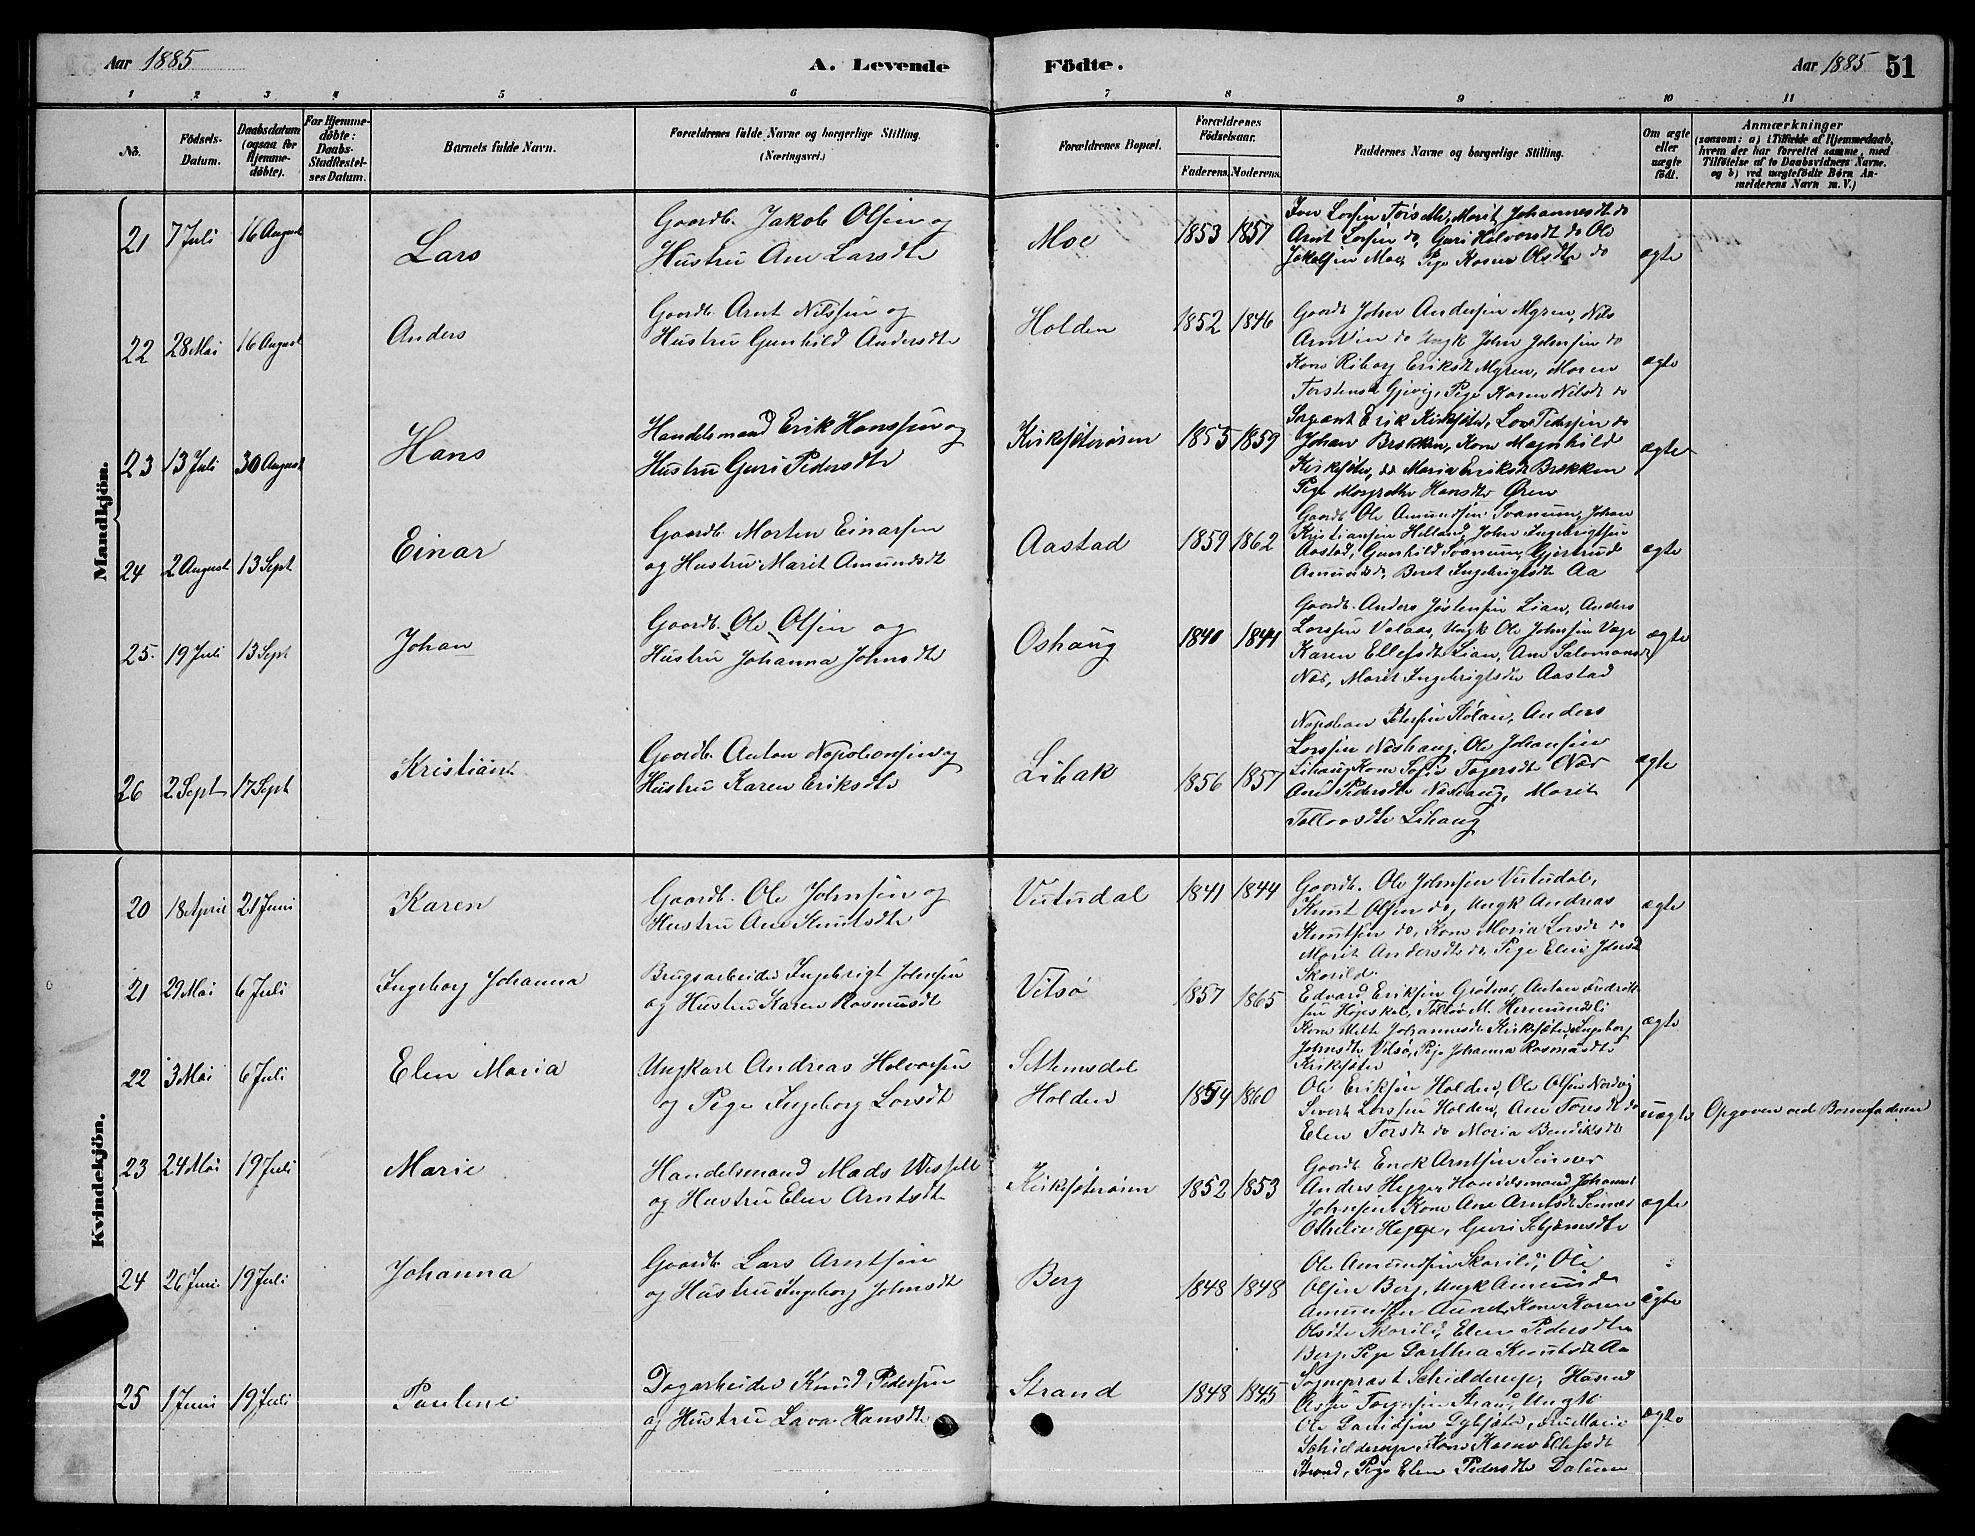 Aar 1885
A. Levende
Födte.
Aar 1885 51
1 2 3 4 5 6 7 8 9 10 11
No.
Födsels-
Datum.
Daabsdatum
(ogsaa for
Hjemme-
döbte).
For Hjemme-
döbte:
Daabs-
Stadfæstel-
ses Datum.
Barnets fulde Navn.
Forældrenes fulde Navne og borgerlige Stilling.
(Næringsvei.)
Forældrenes Bopæl.
Forældrenes
Födselsaar.
Faderens. Moderens.
Faddernes Navne og borgerlige Stilling.
Om ægte
eller
uægte
födt.
Anmærkninger
(saasom: a) i Tilfælde af Hjemmedaab,
hvem der har forrettet samme, med
Tilföielse af to Daabsvidners Navne.
og b) ved uægtefödte Börn An-
melderens Navn m. V.)
Mandkjön.
21 7 Juli 16 August Lars
Gaardb. Jakob Olsen og
Hustru Ane Larsdtr
Moe 1853 1857
Arnt Larsen do, Guri Halvorsdt do Ole
Jakobsen Moe, Pige Karen Olsdtr do
ægte
22 28 Mai 16 August Anders
Gaardb. Arnt Nilssen og
Hustru Gunhild Andersdtr
Holden 1852 1846
Gaardb John Andersen Mgren, Nils
Arntsen do Ungk John Johnsen do
Kone Riborg Eriksdt Mgren, Maren
Torstensd Gjevig, Pige Karen Nilsdt do
ægte
23 13 Juli 30 August Hans
Handelsmand Erik Hanssen og
Hustru Guri Pedersdtr
Kirksæterøren 1855 1859
Sergeant Erik Kirksæter, Lars Petersen do
Johan Brekken, Kone Magnhild
Kirksæter, do Maria Eriksdt Brekken
Pige Margrethe Hansdtr Øren
ægte
24 2 August 13 Sept Einar
Gaardb. Morten Einarsen
og Hustru Marit Amundsdt
Aastad 1859 1862
Gaardb Ole Amundsen Svanum, Johan
Kristiansen Helland, John Ingebrigtsen
Aastad, Gunhild Svanum, Gjertrud
Amundsd, Beret Ingebrigtsdtr Aa
ægte
25. 19 Juli 13 Sept Johan
Gaardb. Ole Olsen og
Hustru Johanna Johnsdtr
Oshaug 1840 1841
Gaardb. Anders Jøstensen Lian, Anders
Larssen Valaas, Ungk Ole Johnsen Vage
Karen Ellefsdtr Lian, Ane Salomonsdt
Næs, Marit Ingebrigtsdtr Aastad
ægte
26 2 Sept 17 Sept Kristian
Gaardb. Anton Napoleonsen og
Hustru Karen Eriksdtr
Lihak 1856 1857
Napoleon Petersen Stølan, Anders
Larssen Næshaug, Ole Johansen
Lihaug Kone Sofie Tøgersdtr Næs
Ane Pedersdtr Næshaug, Marit
Lihaug
ægte
Kvindekjön.
20 18 April 21 Juni Karen
Gaardb. Ole Johnsen og
Hustru Ane Knutsdtr
Vutudal 1841 1844
Gaardb. Ole Johnsen Vutudal,
Knut Olsen do, Ungk Andreas
Knutsen do, Kone Maria Larsdt do
Marit Andersdtr do Pige Elen Johnsd
Skarild
ægte
21 29 Mai 6 Juli Ingeborg Johanna
Brugsarbeider Ingebrigt Johnsen
og Hustru Karen Rasmusdt
Vitsø 1857 1865
Edvard Eriksen Grøtnes, Anton Fredrik-
sen
Kone Mette Johannesdt Kirksæter, Ingeborg
Johnsdtr Vitsø, Pige Johanna Rasmusdtr
Kirksæter
ægte
22 3 Mai 6 Juli Elen Maria
Ungkarl Andreas Halvorsen
og Pige Ingeborg Larsdt
Stemsdal
Holden 1854 1860
Ole Eriksen Holden, Ole Olsen Nordvig
Sivert Larssen Holden, Ane Toresdt do
Elen Torsdt do Maria Bendiksdtr
uægte Opgaven ved Barnefaderen
23 24 Mai 19 Juli Marie
Handelsmand Mads Wessel
og Hustru Elen Arntsdt
Kirksæterøren 1852 1853
Gaardb. Enok Arntsen Sinnes
Anders Hegge, Handelsmand Johannes
Johnsen, Kone Ane Arntsdt Sinnes
Othelie Hegge, Guri
ægte
24 26 Juni 19 Juli Johanna
Gaardb Lars Arntsen
og Hustru Ingeborg Johnsdt
Berg 1848 1848
Ole Amundsen Skarild, Ole
Olsen Berg, Ungk Amund
Amundsen Aunet, Kone Karen
Olsdtr Skarild, Elen Pedersdtr
Berg, Pige Dorthea Knutsdt Aa
ægte
25 1 Juni 19 Juli Pauline
Dagarbeider Knud Pedersen
og Hustru Lava Hansdtr
Strand 1848 1845
Sogneprest Schielderup, Husmd
Strand, Ungk
Ole Davidsen Dybsæter, Fru Marie
Schielderup, Kone Karen Ellefsdt
Strand, Pige Elen Pedersdtr Dalum
ægte